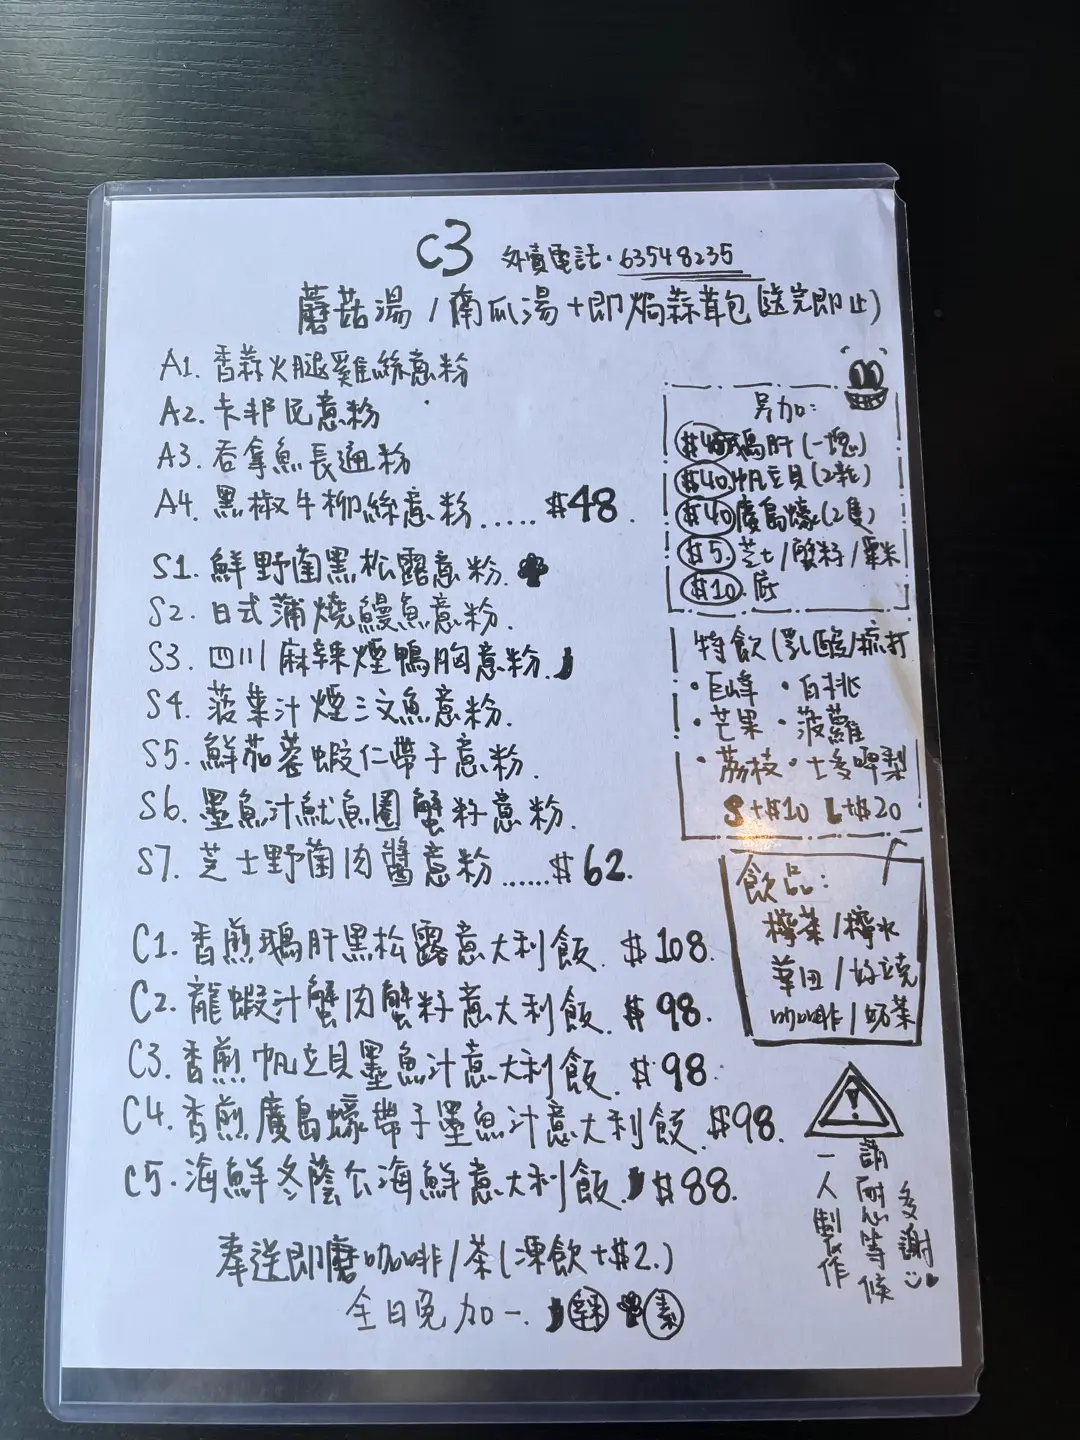 C3 外賣電話·63548235
蘑菇湯/南瓜湯+即焗蒜茸包(送完即止)
A1. 香蒜火腿雞絲意粉
A2. 卡邦尼意粉
A3. 吞拿魚長通粉
A4. 黑椒牛柳絲意粉..... $48.
S1. 鮮野菌黑松露意粉.
S2. 日式蒲燒鰻魚意粉.
S3. 四川麻辣煙鴨胸意粉.
S4. 菠菜汁煙三文魚意粉.
S5. 鮮茄蓉蝦仁帶子意粉.
S6. 墨魚汁魷魚圈蟹籽意粉.
S7. 芝士野菌肉醬意粉......$62.
C1. 香煎鵝肝黑松露意大利飯. $108.
C2. 龍蝦汁蟹肉蟹籽意大利飯. $98.
C3. 香煎帆立貝墨魚汁意大利飯. $98.
C4. 香煎廣島蠔帶子墨魚汁意大利飯. $98.
C5. 海鮮冬蔭公海鮮意大利飯. $88.
奉送即磨咖啡/茶(凍飲+$2.)
全日免加一. 辣 素
另加:
鵝肝(一塊)
$40 帆立貝(2粒)
$40 廣島蠔(2隻)
$5. 芝士/蟹籽/粟米
$10. 底
特飲(乳酸/梳打
·巨峰 ·白桃
·芒果 ·菠蘿
·荔枝 ·士多啤梨
S+$10 L+$20
飲品:
檸茶/檸水
華田/好立克
咖啡/奶茶
一人製作
請耐心等候
多謝